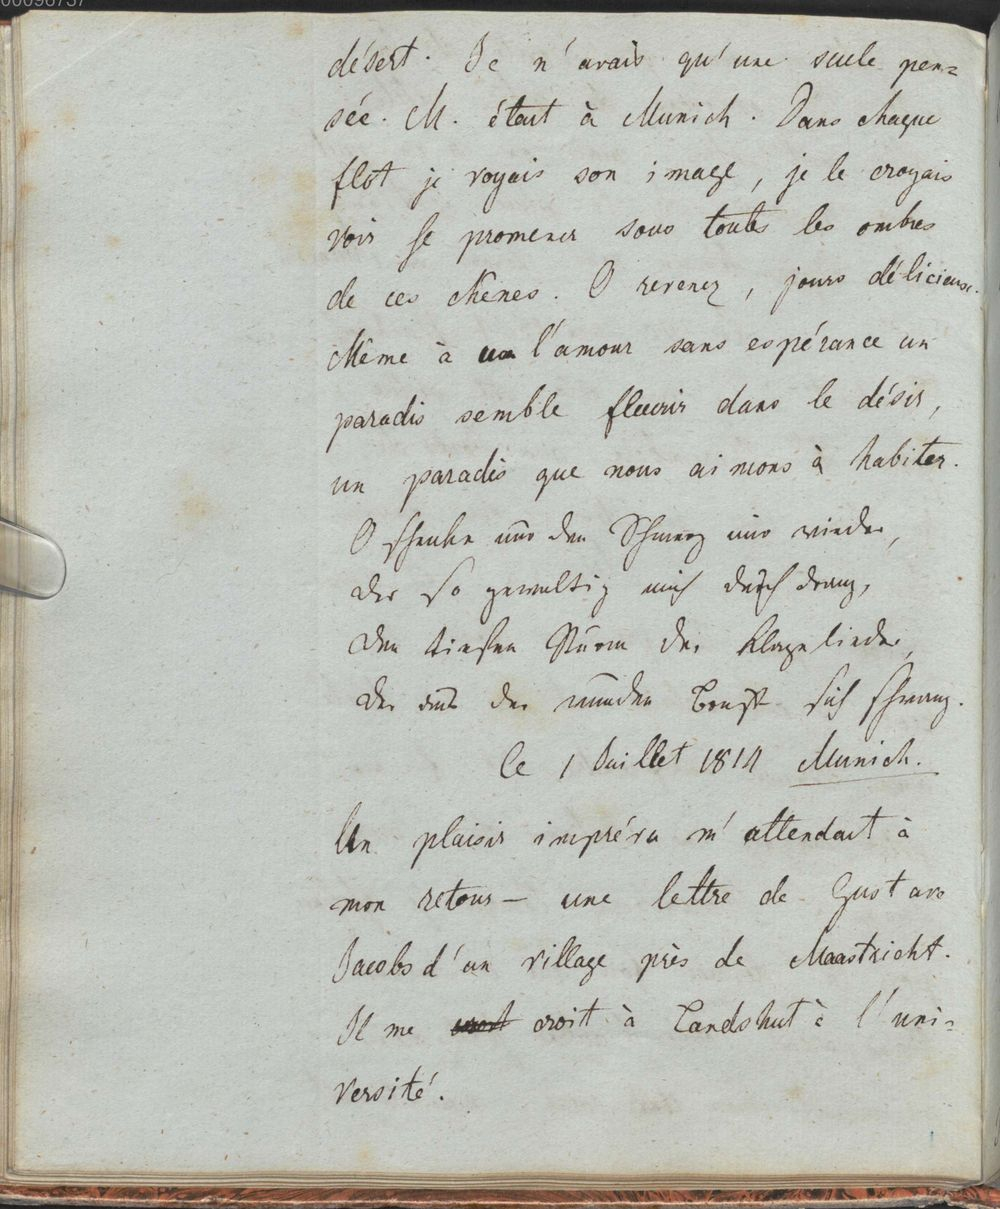 00096737
désert. Je n'avais qu'une seule pen=
sée. M. était à Munich. Dans chaque
flot je voyais son image, je le croyais
voir se promener sous toutes les ombres
de ces chênes. O revenez, jours délicieux.
Même à l'amour sans espérance un
paradis semble fleurir dans le désir,
un paradis que nous aimons à habiter.
O schenke nur den Schmerz mir wieder,
der so gewaltig mich durchdrang,
den tiefen Sturm der Klagelieder,
der aus der wunden Brust sich schwang.
Le 1 Juillet 1814 Munich.
Un plaisir imprévu m'attendait à
mon retour — une lettre de Gustave
Jacobs d'un village près de Maastricht.
Il me croit à Landshut à l'uni=
versité.